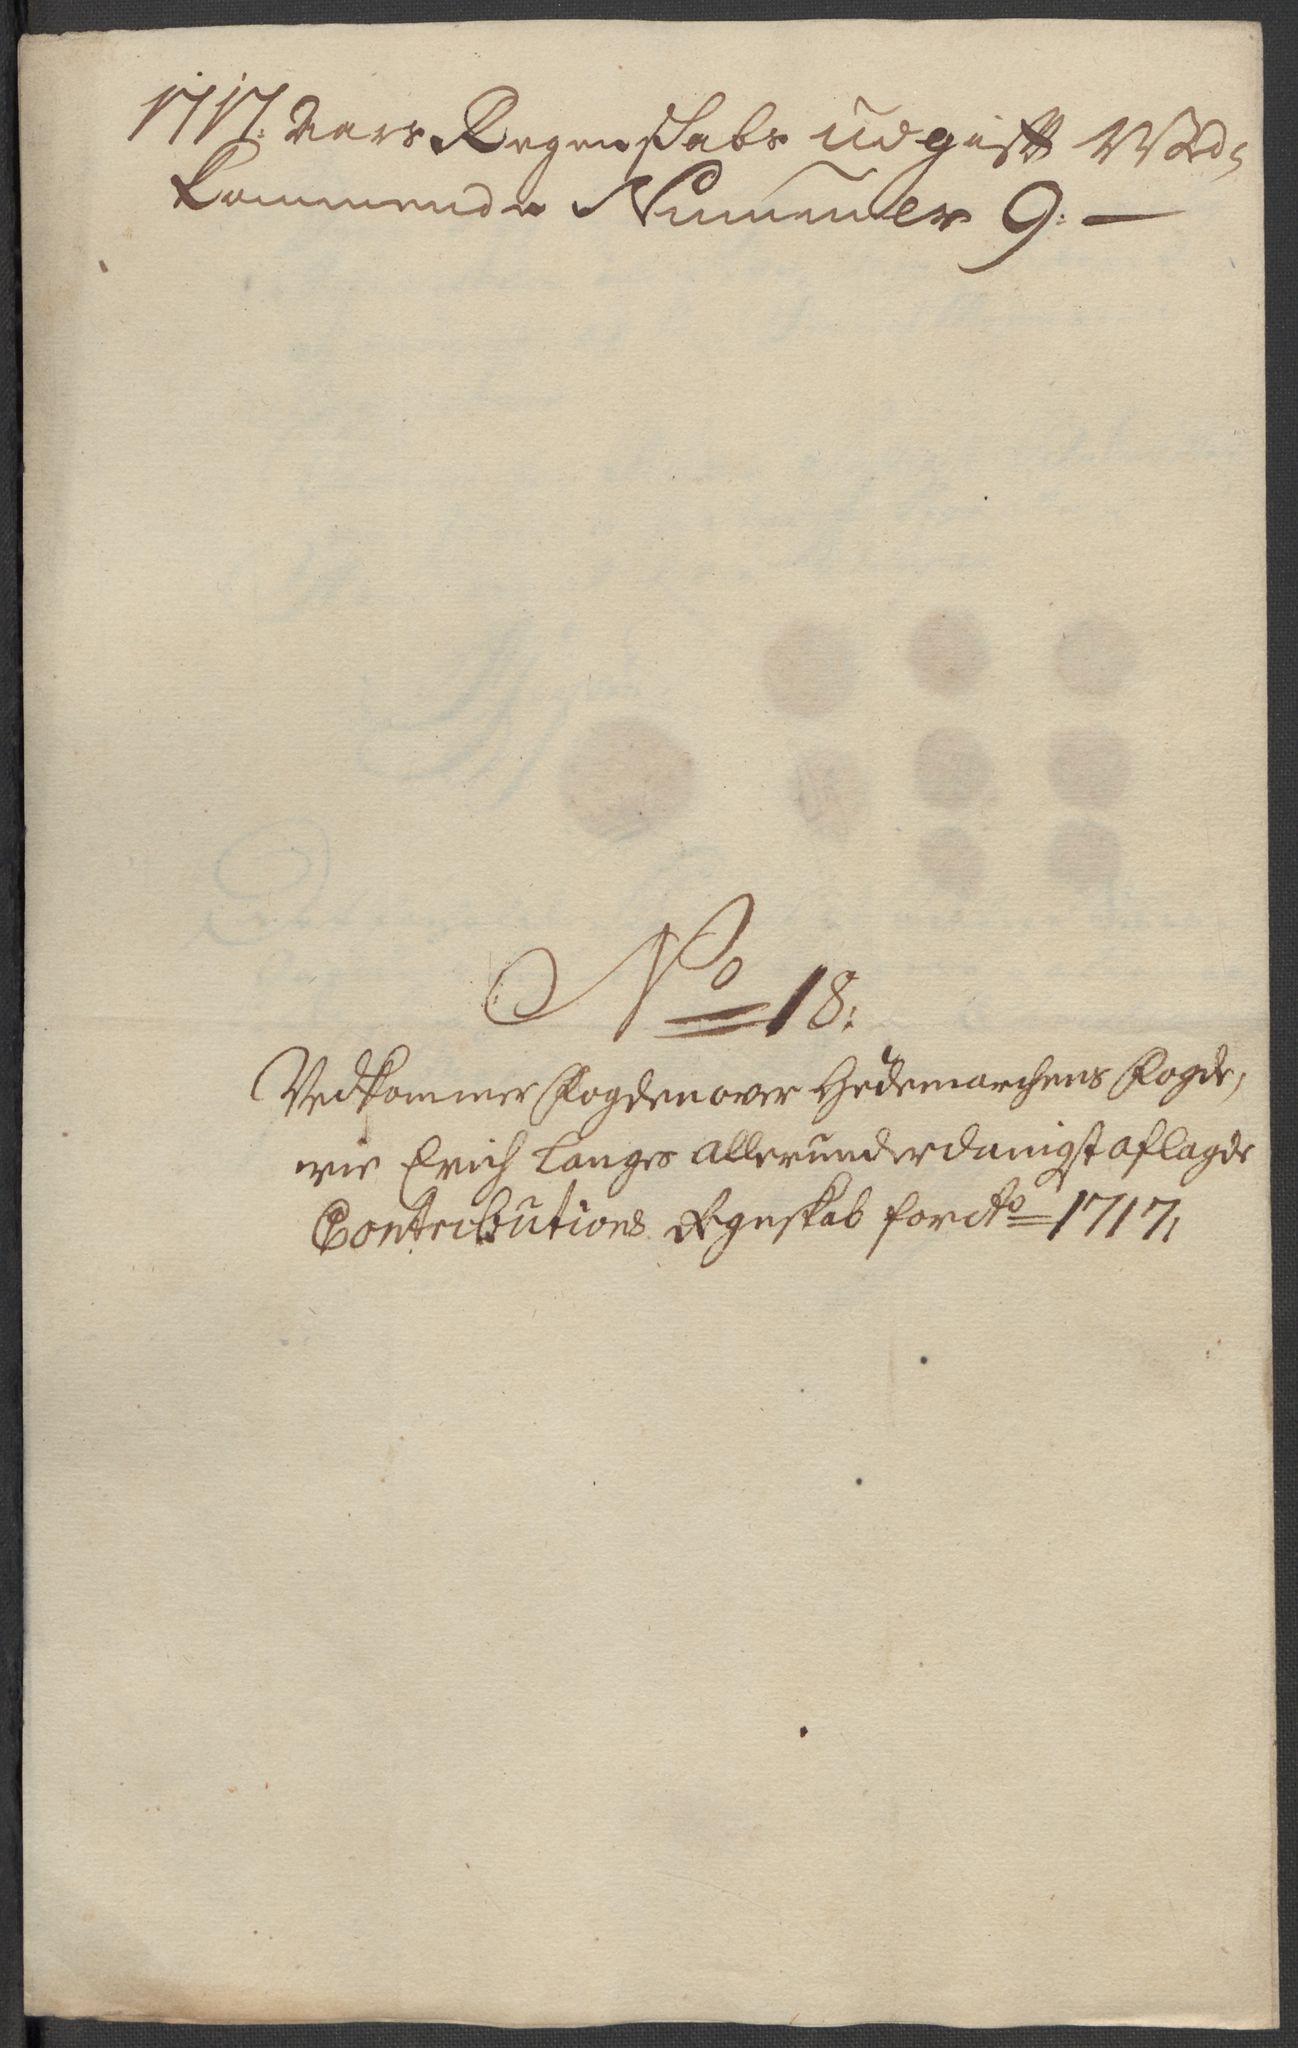 1717. Aars Regenskabs udgifft Ved,
kommende Nummer 9. —
No 18:
Vedkommer Fogden over Hedemarchens Fogde,
rie Erich Langes allerunderdanigst aflagde
Contributions Regnskab for Ao 1717,